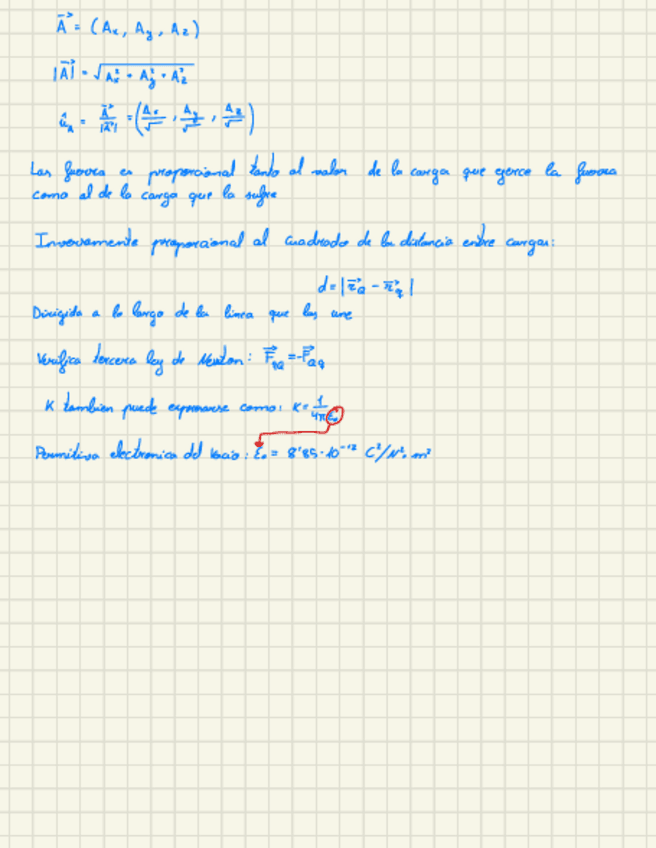 A⃗ = (Ax, Ay, Az)
|A⃗| = √(Ax² + Ay² + Az²)
ûA = A⃗/|A⃗| = (Ax/√‾, Ay/√‾, Az/√‾)
Las fuerza es proporcional tanto al valor de la carga que ejerce la fuerza
como al de la carga que la sufre
Inversamente proporcional al cuadrado de la distancia entre cargas:
d = |r⃗Q - r⃗q|
Dirigida a lo largo de la linea que las une
Verifica tercera ley de Newton: F⃗qQ = -F⃗Qq
K tambien puede expresarse como: K = 1/4πε₀
Permitiva electronica del Vacio: ε₀ = 8'85·10⁻¹² C²/N²·m²